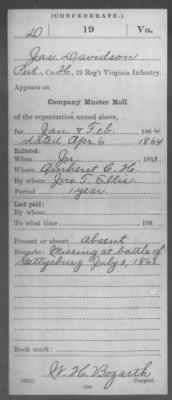 (CONFEDERATE.)
D 19 Va.
Jas. Davidson
Pvt., Co. H, 19 Reg't Virginia Infantry.
Appears on
Company Muster Roll
of the organization named above,
for Jan. & Feb. 1864
dated Apr. 6 1864
Enlisted:
When 1863.
Where Amherst C. H.
By whom Jno. T. Ellis
Period 1 year
Last paid:
By whom
To what time 186 .
Present or absent Absent
Remarks: Missing at battle of
Gettysburg July 3, 1863
Book mark:
W. H. Bozarth
(642) Copyist.